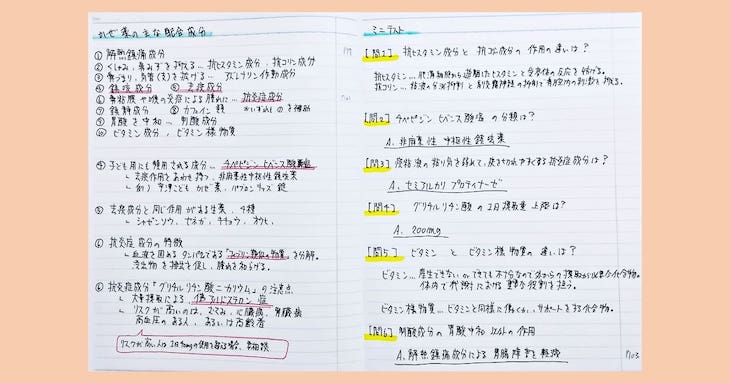 かぜ薬の主な配合成分
① 解熱鎮痛成分
② くしゃみ、鼻みずを抑える…抗ヒスタミン成分、抗コリン成分
③ 鼻づまり、気管(支)を拡げる…アドレナリン作動成分
④ 鎮咳成分 ⑤ 去痰成分
⑥ 鼻粘膜や喉の炎症による腫れに…抗炎症成分
⑦ 鎮静成分 ⑧ カフェイン類
⑨ 胃酸を中和…制酸成分
⑩ ビタミン成分、ビタミン様物質
④ 子ども用にも使用される成分…チペピジンヒベンズ酸塩
└ 去痰作用をあわせ持つ、非麻薬性中枢性鎮咳薬
└ 例) 宇津こどもかぜ薬、パブロンキッズ錠
⑤ 去痰成分と同じ作用がある生薬、4種
└ シャゼンソウ、セネガ、キキョウ、オウヒ
⑥ 抗炎症成分の特徴
└ 血液を固めるタンパクである「フィブリン類似の物質」を分解。
浸出物を排出を促し、腫れを和らげる。
⑥ 抗炎症成分「グリチルリチン酸二カリウム」の注意点
└ 大量摂取による、偽アルドステロン症
└ リスクが高いのは、むくみ、心臓病、腎臓病
高血圧のある人、あるいは高齢者
ミニテスト
[問1] 抗ヒスタミン成分と抗コリン成分の作用の違いは?
抗ヒスタミン…肥満細胞から遊離したヒスタミンと受容体の反応を妨げる。
[問2] チペピジンヒベンズ酸塩の分類は?
A. 非麻薬性中枢性鎮咳薬
[問3] 痰粘液の粘り気を弱めて、痰を切れやすくする抗炎症成分は?
A. セミアルカリプロティナーゼ
[問4] グリチルリチン酸の1日摂取量上限は?
A. 200mg
[問5] ビタミンとビタミン様物質の違いは?
体内で代謝における重要な役割を担う。
ビタミン様物質…ビタミンと同様に働く
[問6] 制酸成分の胃酸中和以外の作用
A. 解熱鎮痛成分による胃腸障害を軽減